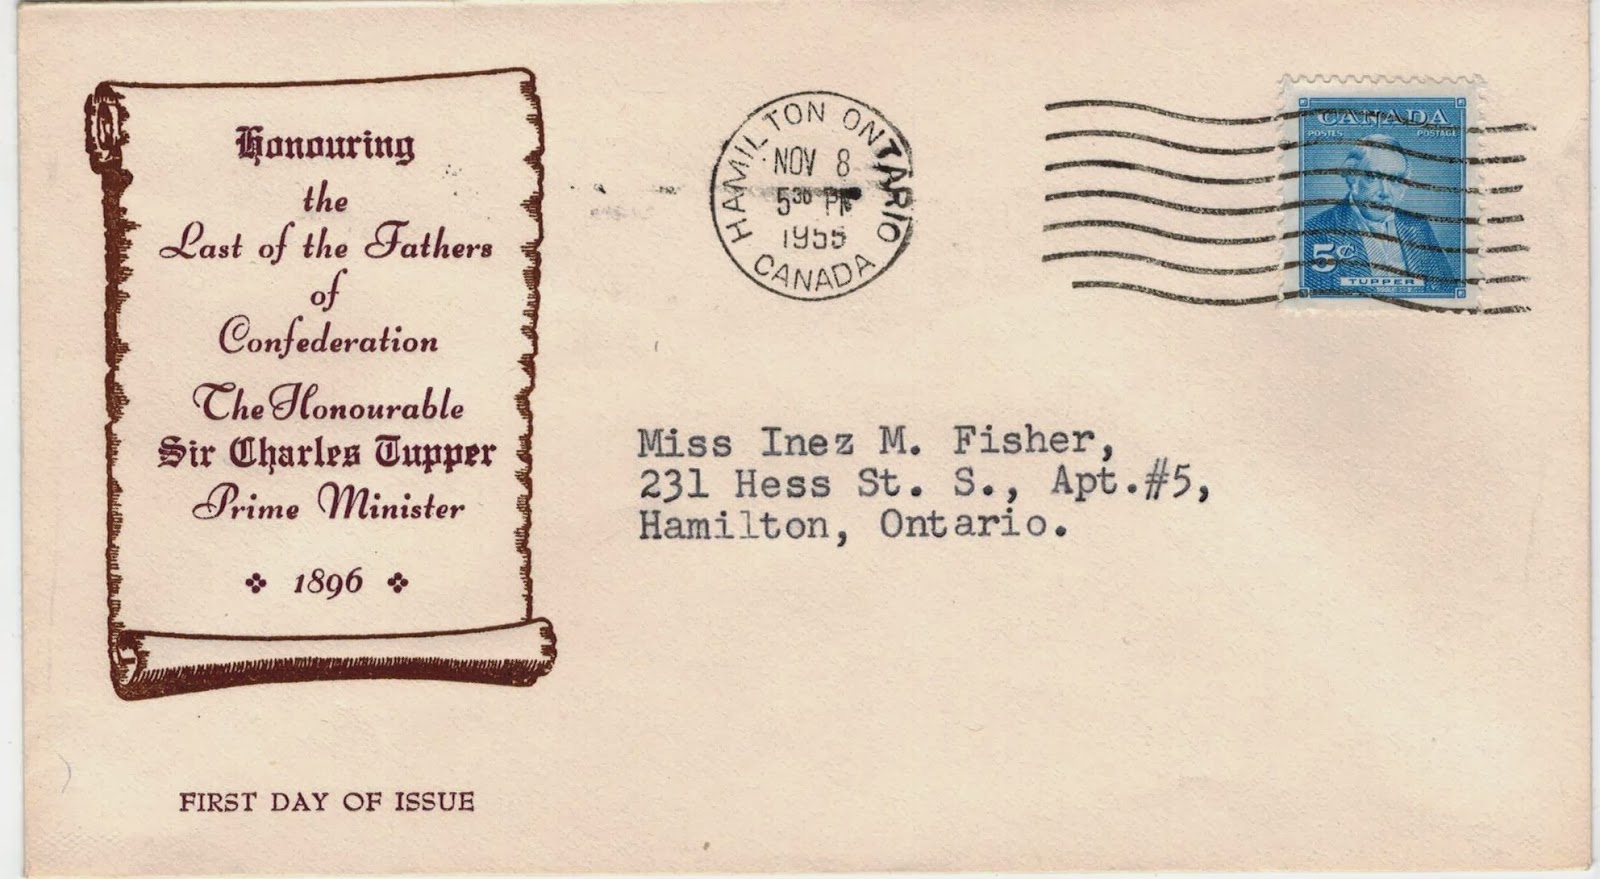 Honouring
the
Last of the Fathers
of
Confederation
The Honourable
Sir Charles Tupper
Prime Minister
1896
FIRST DAY OF ISSUE
HAMILTON ONTARIO
NOV 8
5 30 PM
1955
CANADA
CANADA
POSTES POSTAGE
5¢
TUPPER
Miss Inez M. Fisher,
231 Hess St. S., Apt.#5,
Hamilton, Ontario.